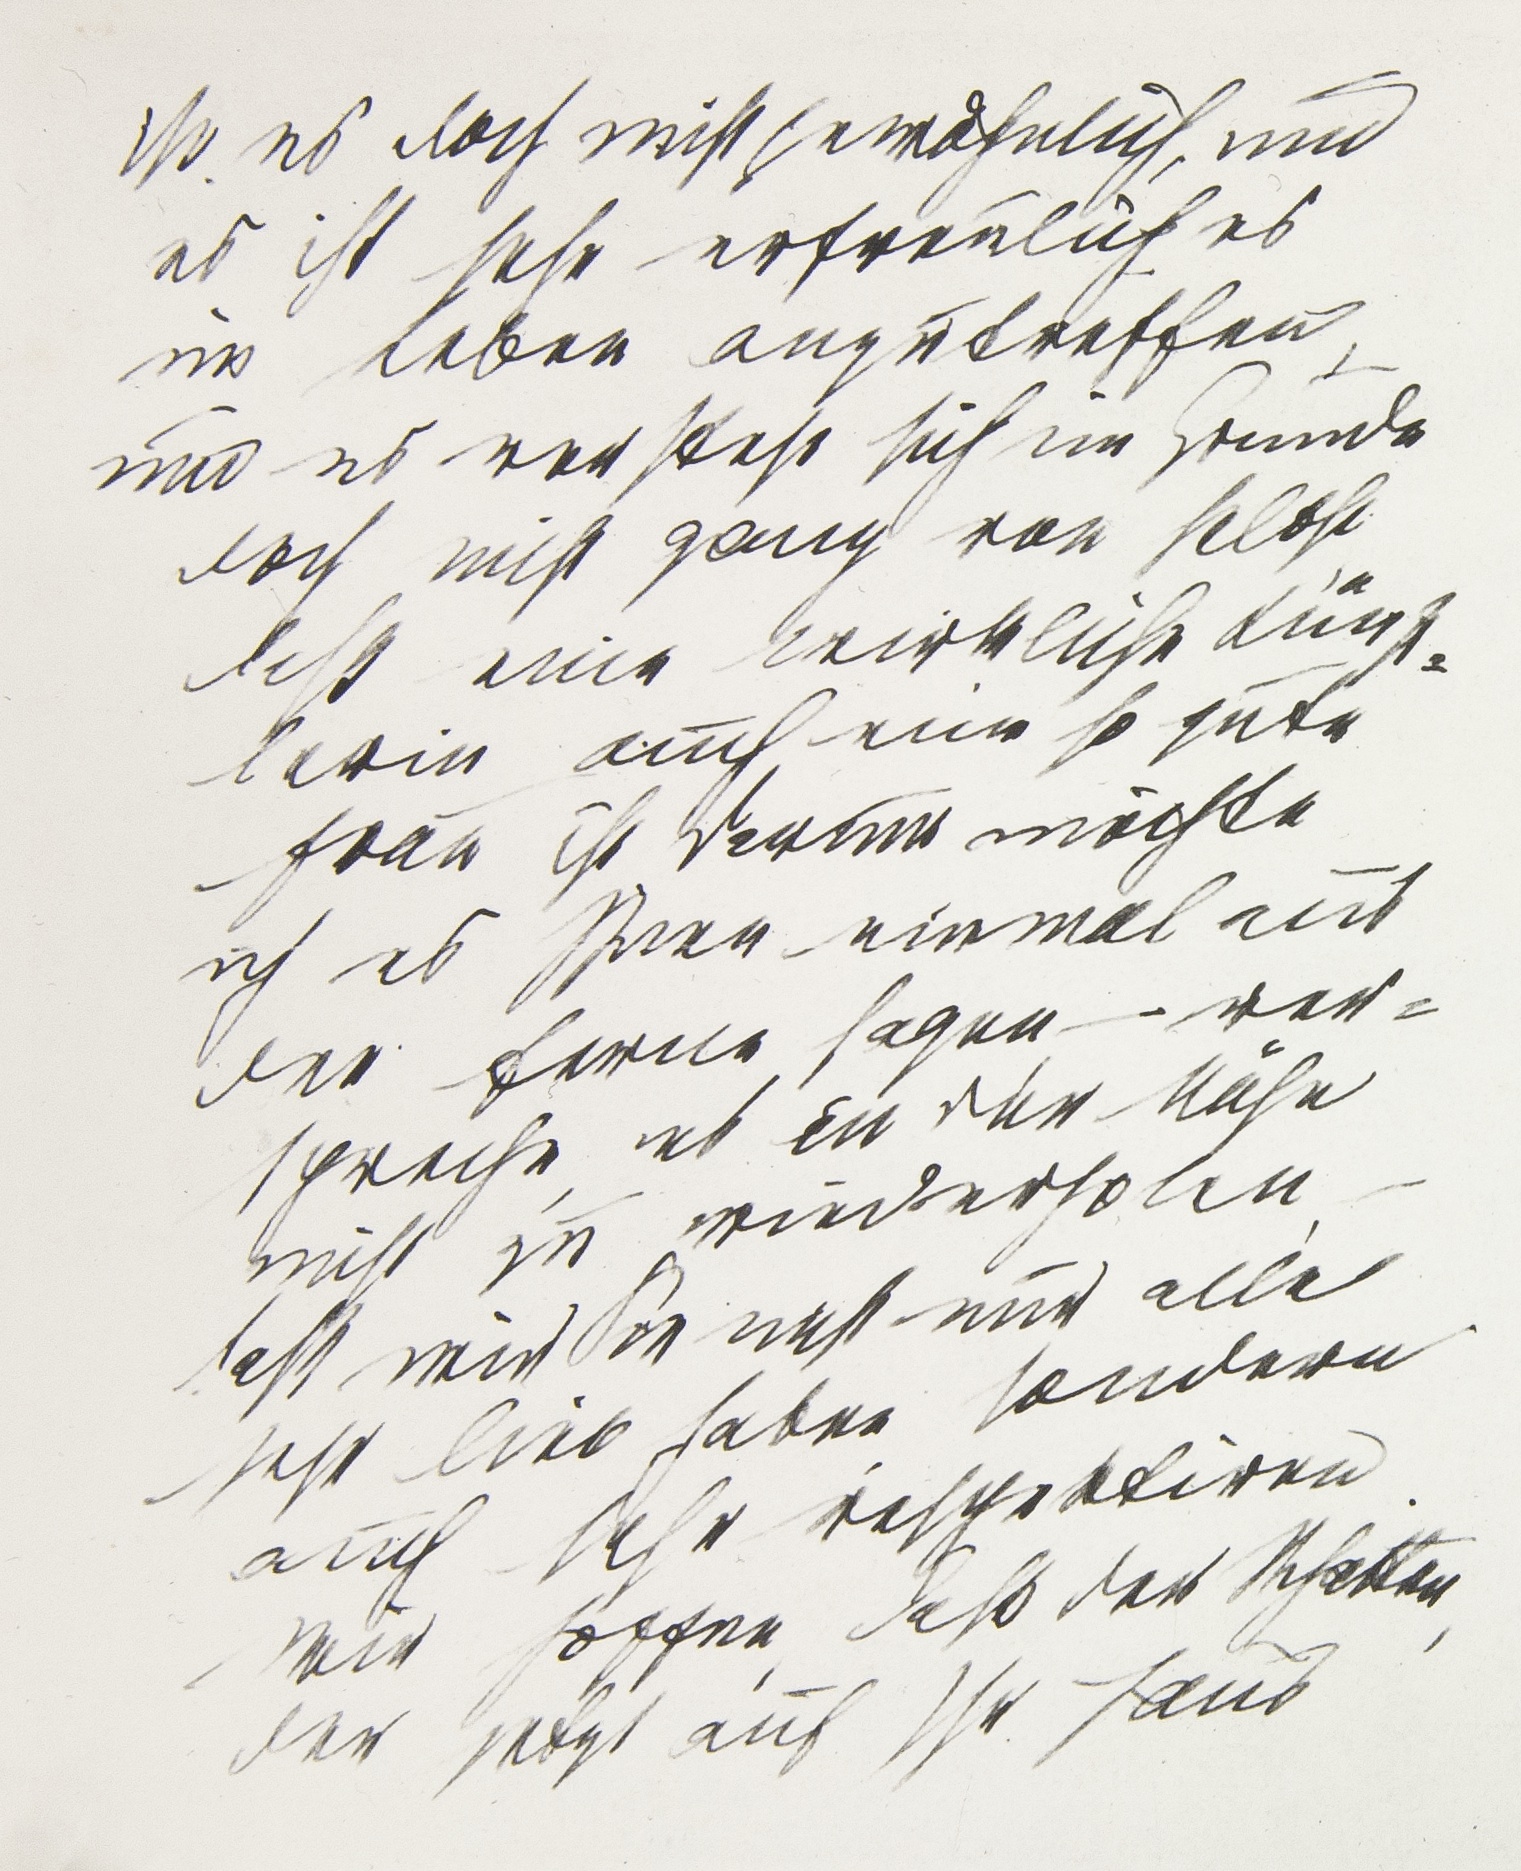 ist es doch nicht gewöhnlich, und
es ist sehr erfreulich es
im Leben anzutreffen,
und es versteht sich im Grunde
doch nicht ganz von selbst
daß eine wirkliche Künst=
lerin auch eine so gute
Frau ist darum möchte
ich es Ihnen einmal aus
der Ferne sagen — ver=
spreche, es in der Nähe
nicht zu wiederholen, –
daß wir Sie nicht nur alle
sehr lieb haben sondern
auch sehr respektiren.
Wir hoffen, daß der Schatten,
der jetzt auf Ihr Haus